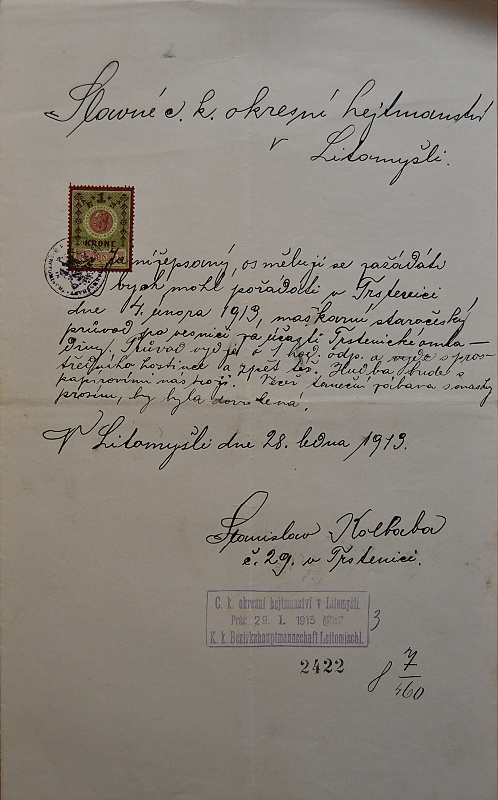 Slavné c. k. okresní hejtmanství
v
Litomyšli.
1
KRONE
Já nížepsaný, osměluji se zažádati
bych mohl pořádati v Trstenici
dne 4. února 1913, maškarní staročeský
průvod po vesnici za účasti Trstenické omla-
diny. Průvod vyjde o 1 hod. odp. a vyjde s pros-
tředního hostince a zpět též. Hudba bude s
papírovími nástroji. Večer taneční zábava s masky
prosím, by byla dovolená.
V Litomyšli dne 28. ledna 1913.
Stanislav Kolbaba
č. 29. v Trstenici.
C. k. okresní hejtmanství v Litomyšli.
Präs: 29. I. 1913
K. k. Bezirkshauptmannschaft Leitomischl.
3
2422
8 7/460